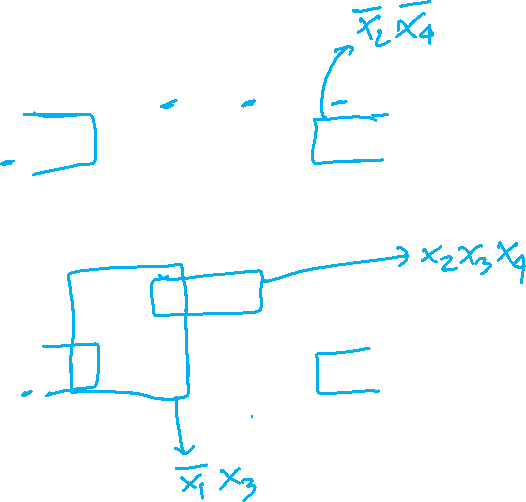 x̅₂ x̅₄
x₂x₃x₄
x̅₁ x₃